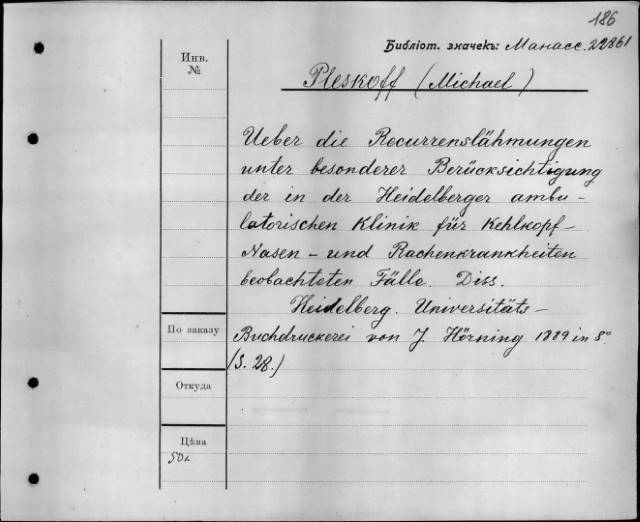 186
Библіот. значекъ: Манасс. 22861
Инв.
№
Pleskoff (Michael)
Ueber die Recurrenslähmungen
unter besonderer Berücksichtigung
der in der Heidelberger ambu-
latorischen Klinik für Kehlkopf-
Nasen- und Rachenkrankheiten
beobachteten Fälle. Diss.
Heidelberg. Universitäts-
Buchdruckerei von J. Hörning 1889 in 8°
(S. 28.)
По заказу
Откуда
Цѣна
50к